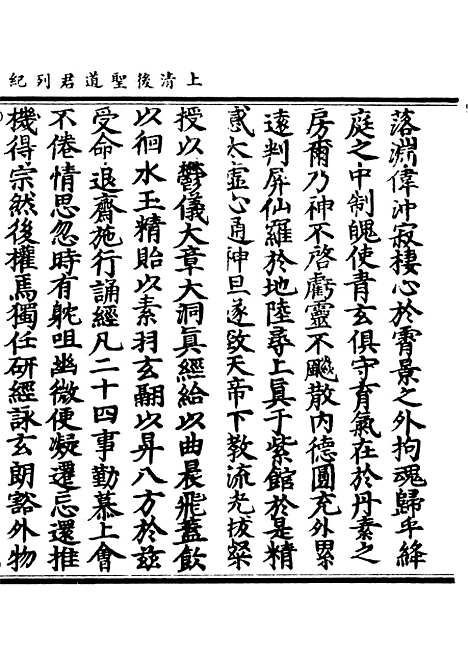 上清後聖道君列紀
落淵偉沖寂棲心於霄景之外拘魂歸乎絳
庭之中制魄使青玄俱守育氣在於丹素之
房爾乃神不啓虧靈不飈散内德圓充外累
遠判屏仙羅於地陸尋上眞于紫館於是精
感太靈心通神旦遂致天帝下教流光拔粲
授以鬱儀大章大洞眞經給以曲晨飛蓋飲
以徊水玉精貽以素羽玄翮以昇八方於兹
受命退齋施行誦經凡二十四事勤慕上會
不倦情思忽時有躭咀幽微便凝還忘還推
機得宗然後權焉獨任研經詠玄朗豁外物